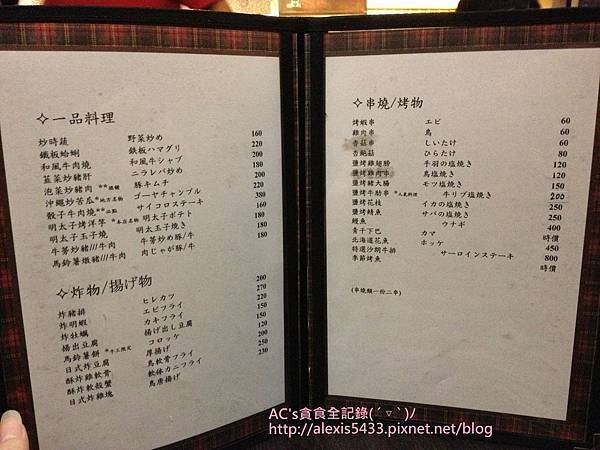 ✧一品料理
炒時蔬 野菜炒め 160
鐵板蛤蜊 鉄板ハマグリ 220
和風牛肉燒 和風牛シャブ 180
韮菜炒豬肝 ニラレバ炒め 120
泡菜炒豬肉 豚キムチ 220
沖繩炒苦瓜 ゴーヤチャンプル 380
骰子牛肉燒 サイコロステーキ 160
明太子烤洋芋 明太子ポテト 180
明太子玉子燒 明太子玉子焼き 180
牛蒡炒豬///牛肉 牛蒡炒め豚/牛 180
馬鈴薯燉豬///牛肉 肉じゃが豚/牛
✧炸物/揚げ物
炸豬排 ヒレカツ 200
炸明蝦 エビフライ 270
炸牡蠣 カキフライ 220
揚出豆腐 揚げ出し豆腐 150
馬鈴薯餅 コロッケ 150
日式炸豆腐 厚揚げ 120
酥炸雞軟骨 鳥軟骨フライ 200
酥炸軟殼蟹 軟体カニフライ 250
日式炸雞塊 鳥唐揚げ 230
✧串燒/烤物
烤蝦串 エビ 60
雞肉串 鳥 60
香菇串 しいたけ 60
杏鮑菇 ひらたけ 80
鹽烤雞翅膀 手羽の塩焼き 120
鹽烤雞肉串 鳥塩焼き 120
鹽烤豬大腸 モツ塩焼き 150
鹽烤牛肋串 *人氣料理 牛リブ塩焼き 200
鹽烤花枝 イカの塩焼き 250
鹽烤鯖魚 サバの塩焼き 250
鰻魚 ウナギ 400
青干下巴 カマ 時價
北海道花魚 ホッケ 450
特選沙朗牛排 サーロインステーキ 800
季節烤魚 時價
(串燒類一份二串)
AC's貪食全記錄(´▽`)ﾉ
http://alexis5433.pixnet.net/blog